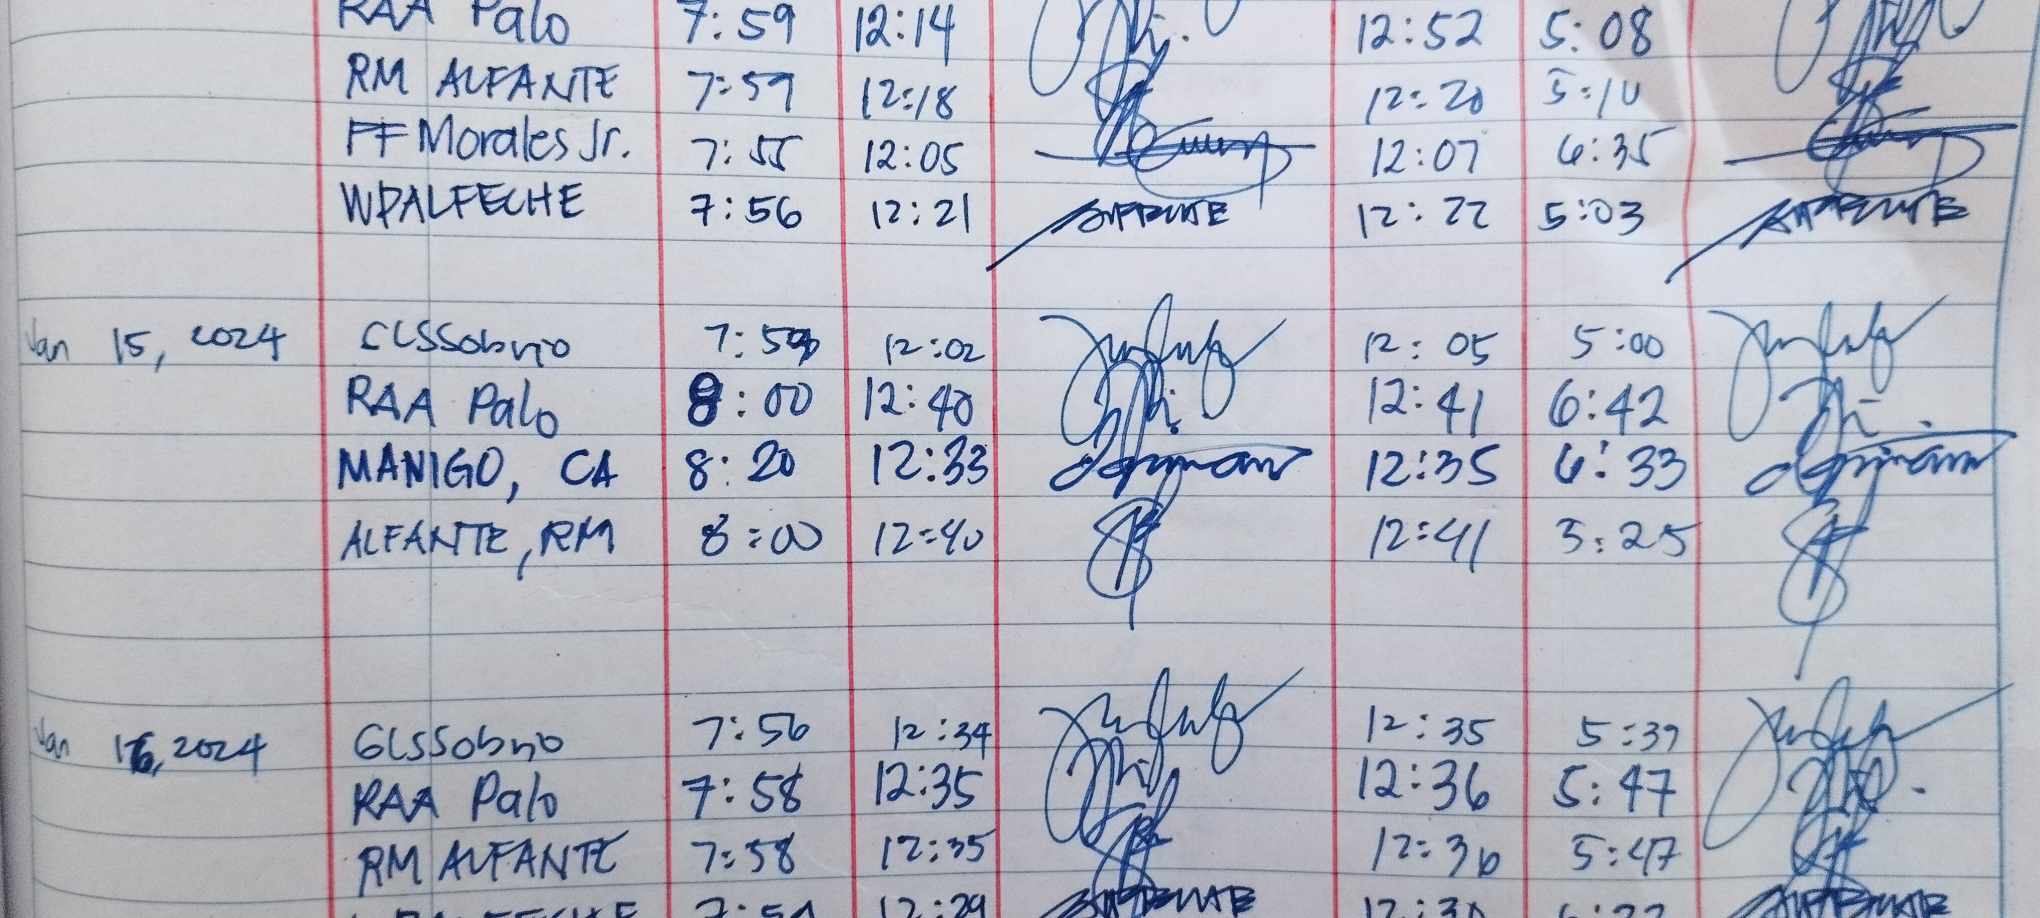 RAA Palo 7:59 12:14 12:52 5:08
RM ALFANTE 7:59 12:18 12:20 5:10
FF Morales Jr. 7:55 12:05 12:07 6:35
WPALFECHE 7:56 12:21 12:22 5:03
Jan 15, 2024 GLSSobrio 12:02 12:05 5:00
RAA Palo 8:00 12:40 12:41 6:42
MANIGO, CA 8:20 12:33 12:35 6:33
ALFANTE, RM 8:00 12:40 12:41 5:25
Jan 16, 2024 GLSSobrio 7:56 12:34 12:35 5:37
RAA Palo 7:58 12:35 12:36 5:47
RM ALFANTE 7:58 12:35 12:36 5:47
12:29